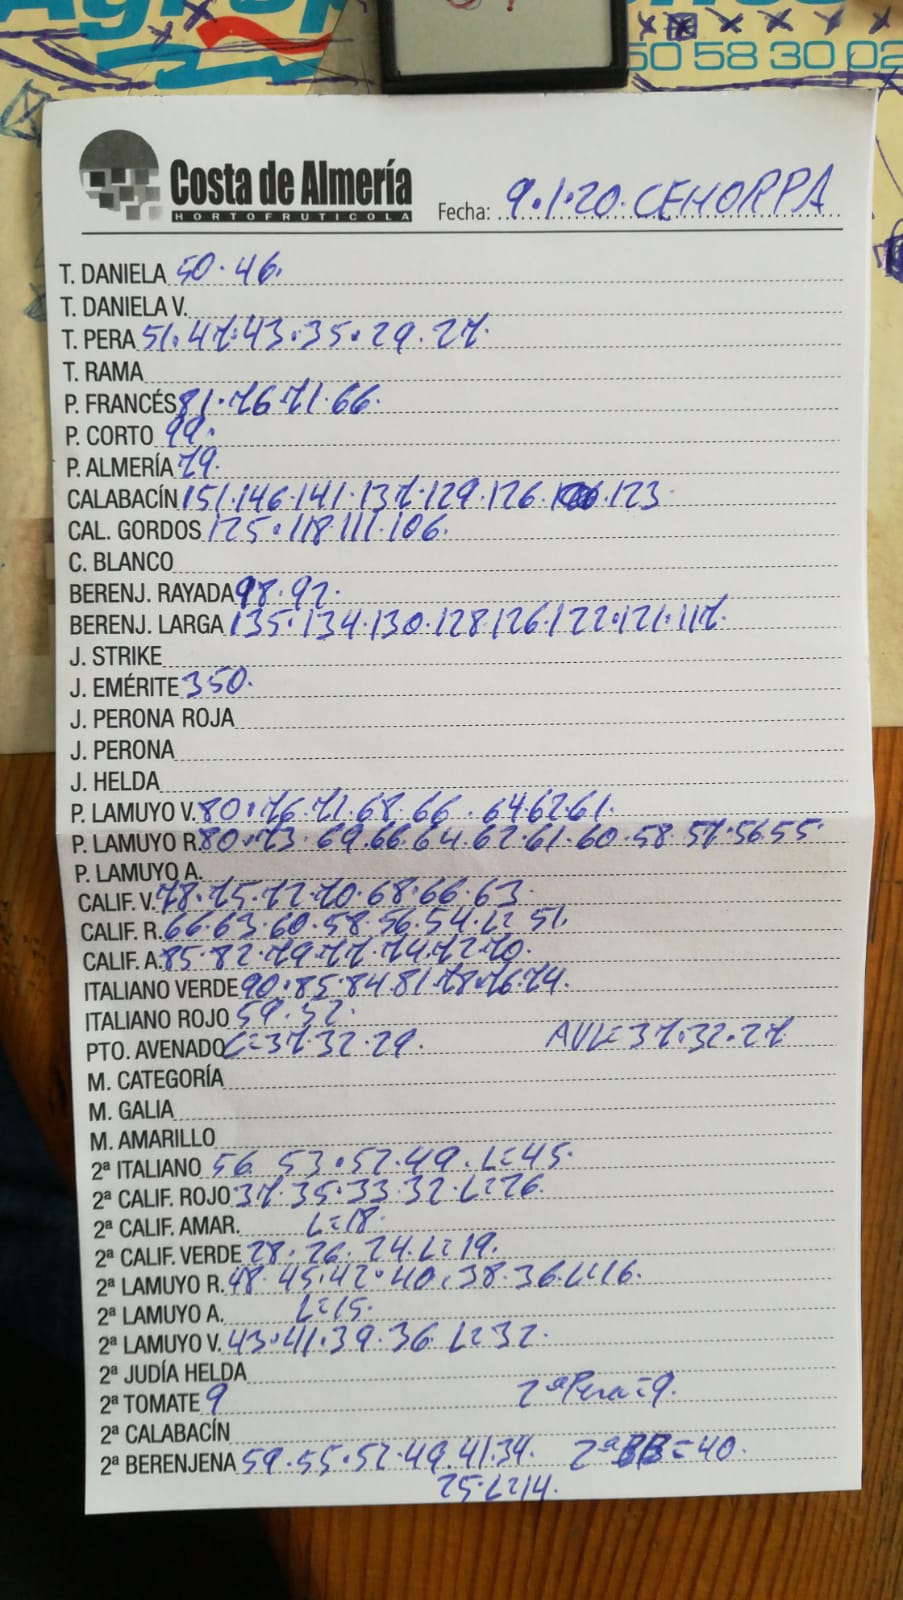 50 58 30 02
Costa de Almería
HORTOFRUTICOLA
Fecha: 9.1.20. CEHORPA
T. DANIELA 50. 46.
T. DANIELA V.
T. PERA 51. 47. 43. 35. 29. 27.
T. RAMA
P. FRANCÉS 81. 76 71. 66.
P. CORTO 99.
P. ALMERÍA 79.
CALABACÍN 151. 146. 141. 137. 129. 126. 123
CAL. GORDOS 125. 118 111. 106.
C. BLANCO
BERENJ. RAYADA 98. 92.
BERENJ. LARGA 135. 134. 130. 128 126. 122. 121. 117.
J. STRIKE
J. EMÉRITE 350.
J. PERONA ROJA
J. PERONA
J. HELDA
P. LAMUYO V. 80. 76. 71. 68. 66. 64. 62. 61.
P. LAMUYO R. 80. 73. 69. 66. 64. 62. 61. 60. 58. 57. 56 55.
P. LAMUYO A.
CALIF. V. 78. 75. 72. 70. 68. 66. 63.
CALIF. R. 66. 63. 60. 58. 56. 54. L= 51.
CALIF. A. 85. 82. 79. 77. 74. 72. 70.
ITALIANO VERDE 90. 85. 84 81. 78. 76. 74.
ITALIANO ROJO 59. 52.
PTO. AVENADO C= 37. 32. 29. AVL= 37. 32. 27.
M. CATEGORÍA
M. GALIA
M. AMARILLO
2ª ITALIANO 56 53. 52. 49. L= 45.
2ª CALIF. ROJO 37. 35. 33. 32. L= 26.
2ª CALIF. AMAR. L= 18.
2ª CALIF. VERDE 28. 26. 24. L= 19.
2ª LAMUYO R. 48. 45. 42. 40. 38. 36. L= 16.
2ª LAMUYO A. L= 15.
2ª LAMUYO V. 43. 41. 39. 36 L= 32.
2ª JUDÍA HELDA
2ª TOMATE 9 2ª Pera = 9.
2ª CALABACÍN
2ª BERENJENA 59. 55. 52. 49. 41. 34. 2ª BB = 40.
25. L= 14.